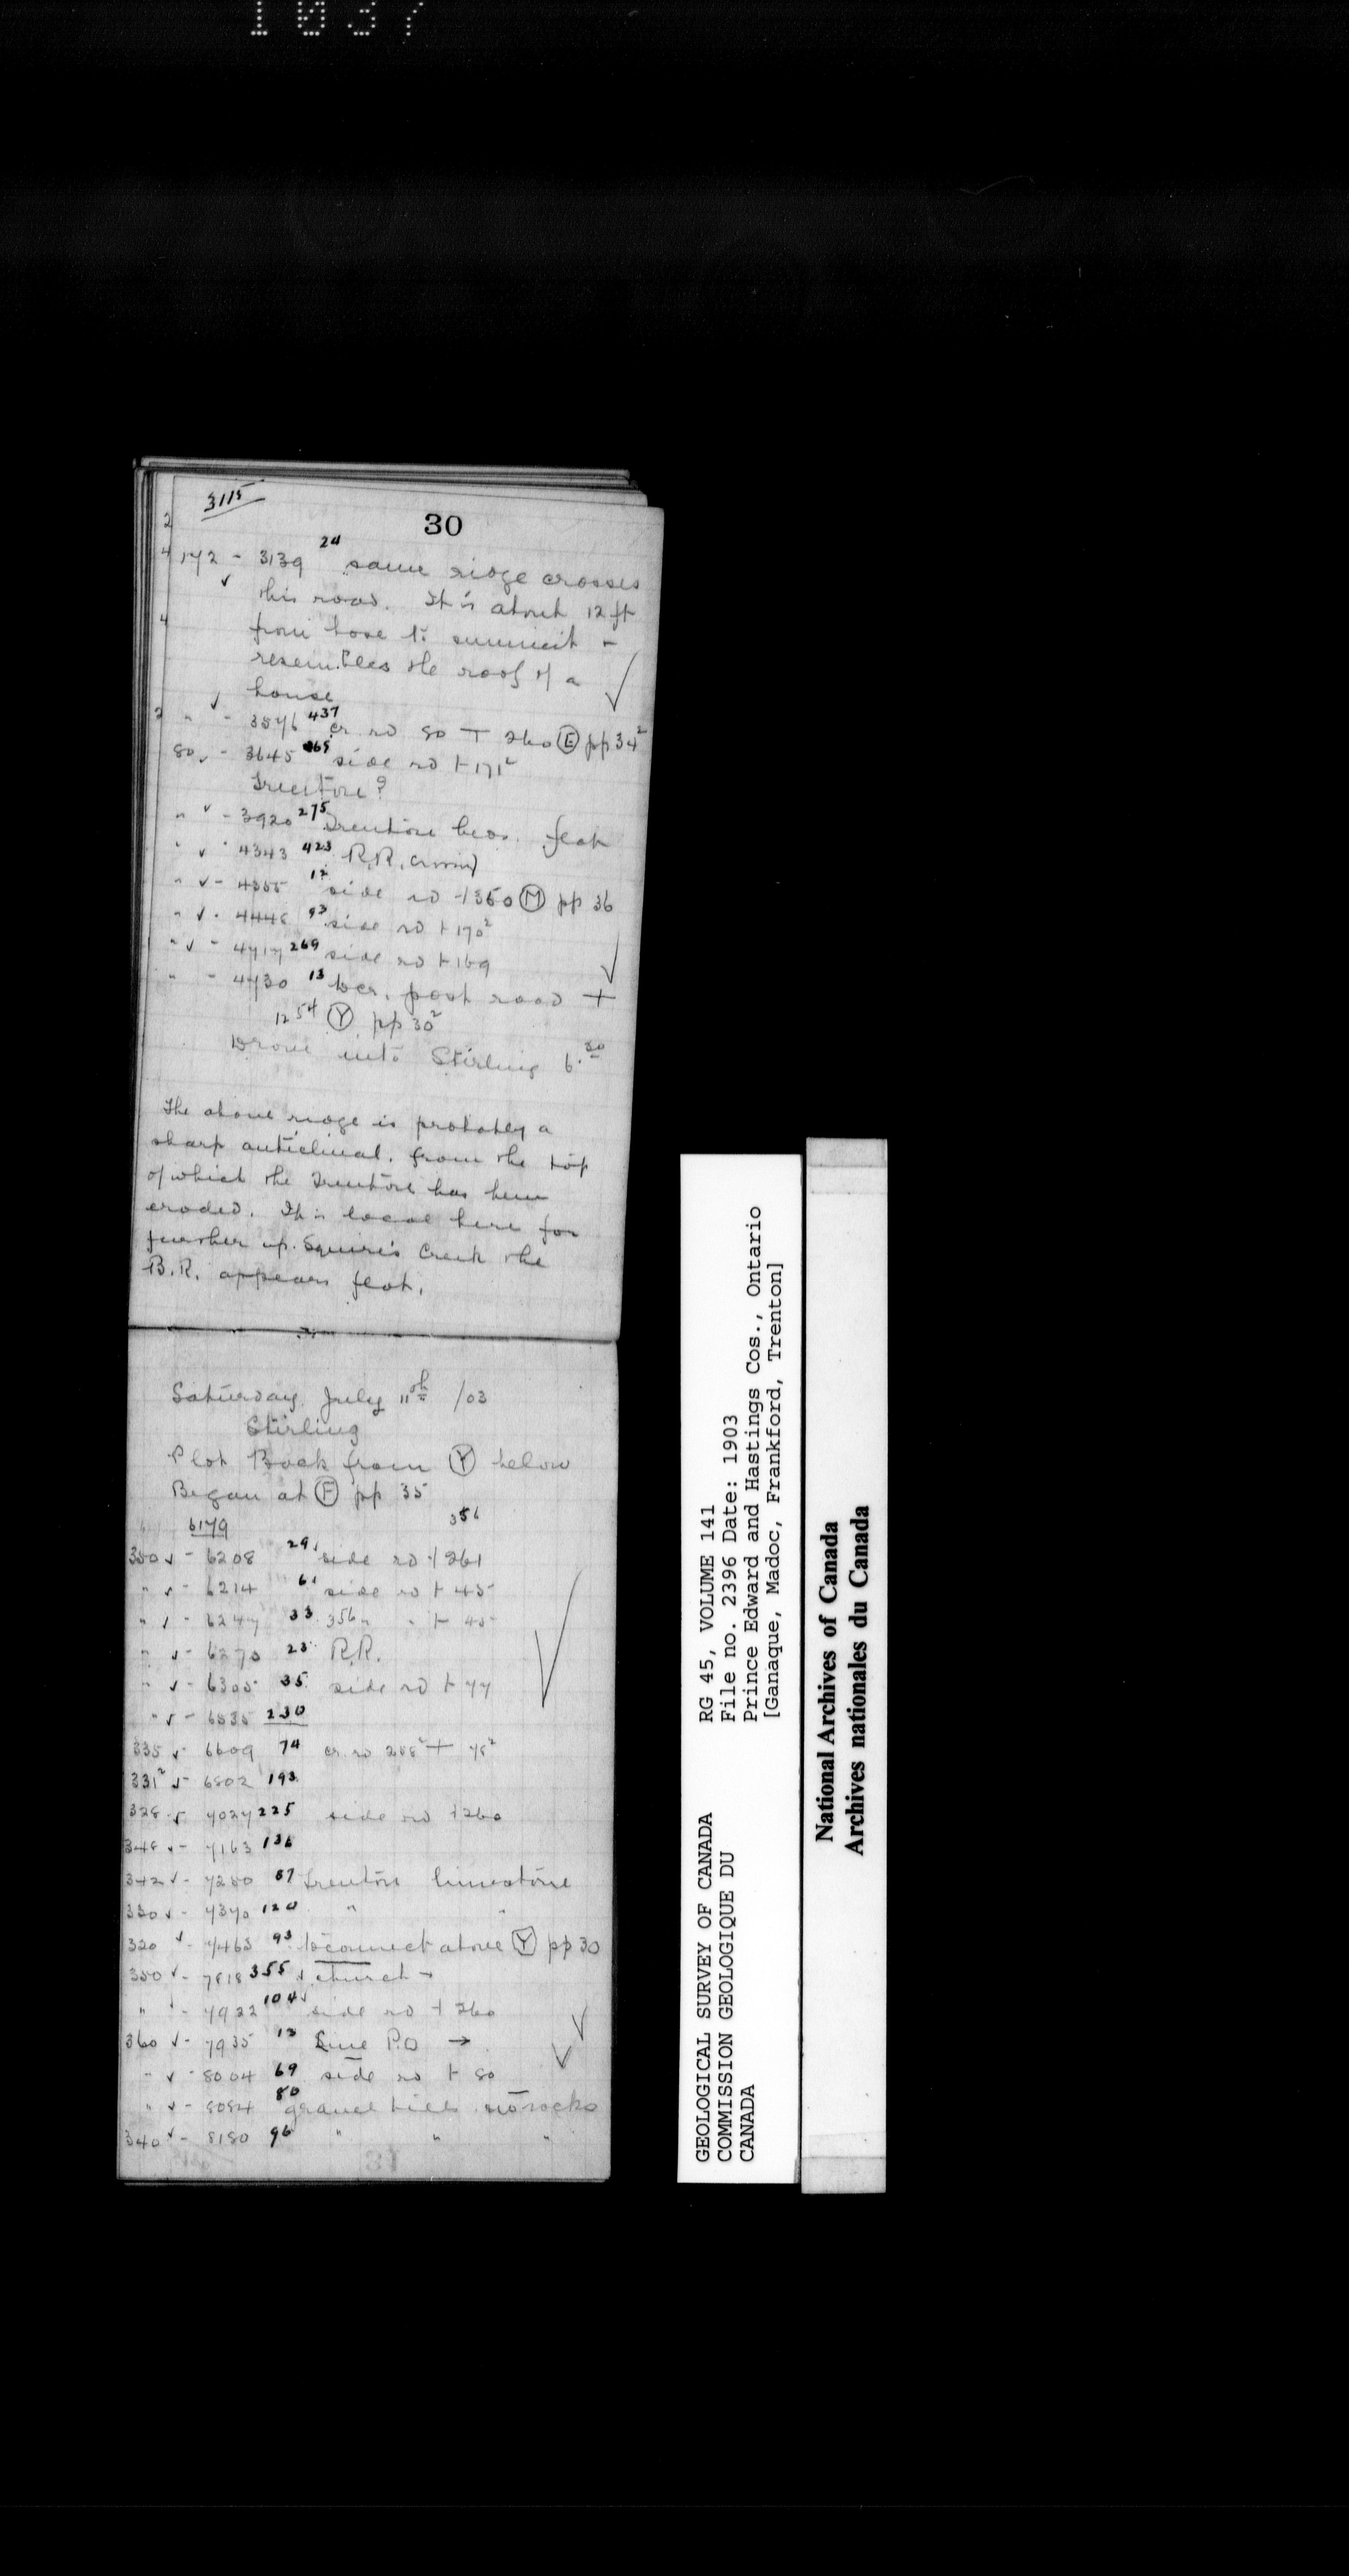 1037
3115
30
172 - 3139 24 same ridge crosses
this road. It is about 12 ft
from base to summit -
resembles the roof of a
house
" - 3576 437 cr rd 80 T 260 (E) pp 34²
80 - 3645 69 side rd + 171²
Trenton?
" - 3920 275 Trenton beds. flat
" - 4343 423 R.R. crossing
" - 4355 12 side rd -| 350 (M) pp 36
" - 4448 93 side rd + 170²
" - 4717 269 side rd + 169
" - 4730 13 to cr. post road +
(Y) pp 30²
Drove into Stirling 6.30
The above ridge is probably a
sharp anticlinal, from the top
of which the Trenton has been
eroded. It is local here for
further up Squire's Creek the
B.R. appears flat.
Saturday July 11th /03
Stirling
Plot Back from (Y) below
Began at (F) pp 35
6179 356
350 ✓ - 6208 29 side rd -| 261
" ✓ - 6214 6 side rd + 45
" ✓ - 6247 33 356 " " + 45
" ✓ - 6270 23 R.R.
" ✓ - 6305 35 side rd + 77
" ✓ - 6535 230
335 ✓ - 6609 74 cr. rd 258² + 78²
331² ✓ - 6802 193
328 ✓ - 7027 225 side rd -| 260
348 ✓ - 7163 136
342 ✓ - 7250 87 Trenton limestone
330 ✓ - 7370 120 " "
320 ✓ - 7463 93 to connect above (Y) pp 30
350 ✓ - 7818 355 church →
" ✓ - 7922 104 side rd -| 260
360 ✓ - 7935 13 Line P.O →
" ✓ - 8004 69 side rd + 80
" ✓ - 8084 80 gravel hills. no rocks
340 ✓ - 8180 96 " " "
GEOLOGICAL SURVEY OF CANADA
COMMISSION GEOLOGIQUE DU
CANADA
RG 45, VOLUME 141
File no. 2396 Date: 1903
Prince Edward and Hastings Cos., Ontario
[Ganaque, Madoc, Frankford, Trenton]
National Archives of Canada
Archives nationales du Canada